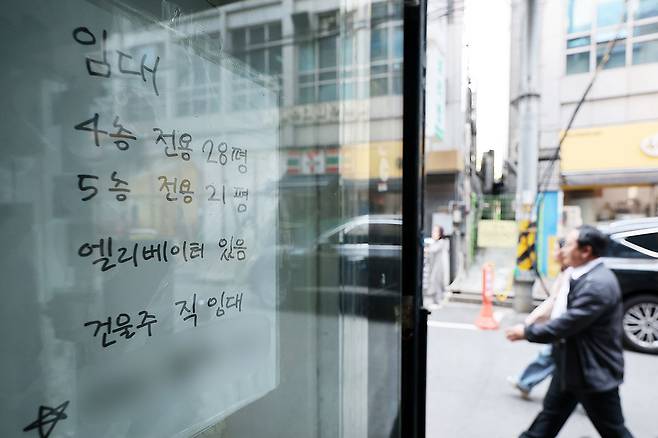 임대
4층 전용 28평
5층 전용 21평
엘리베이터 있음
건물주 직 임대